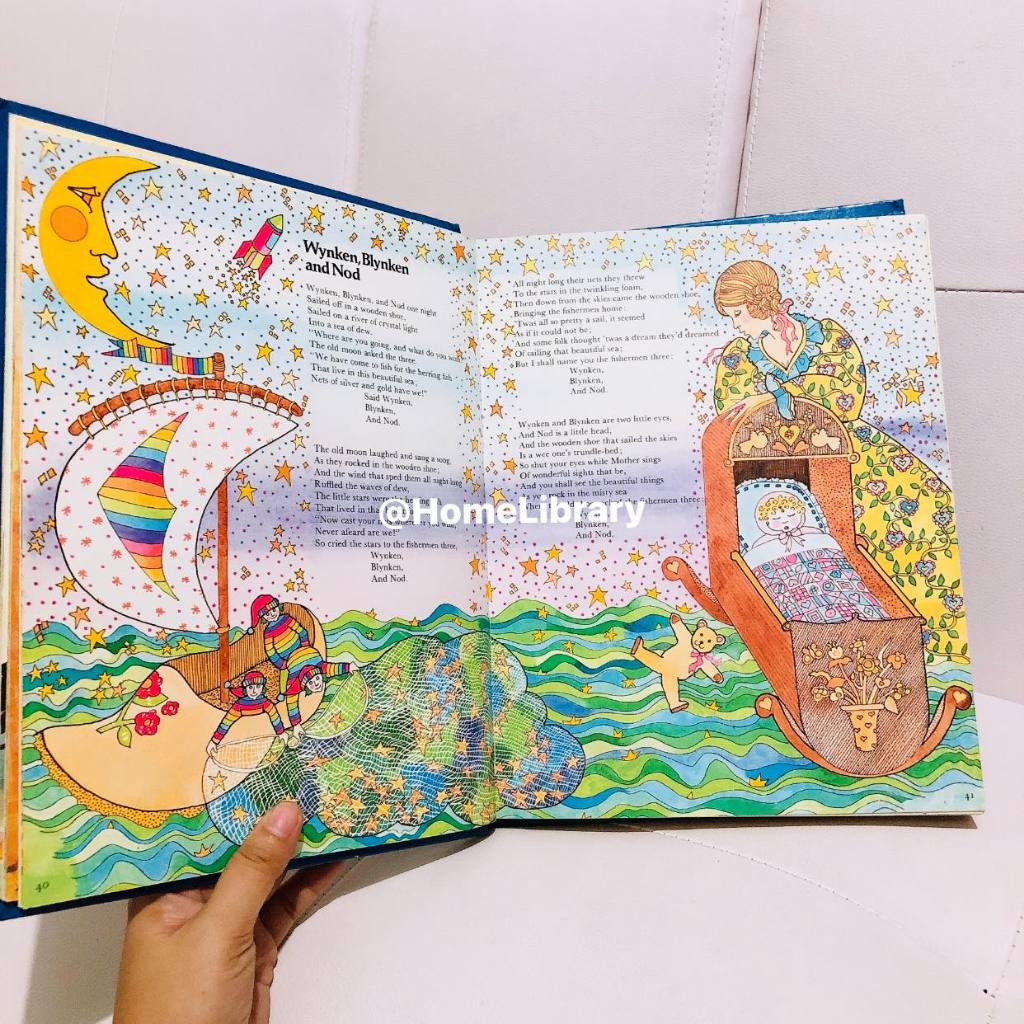 Wynken, Blynken
and Nod
Wynken, Blynken, and Nod one night
Sailed off in a wooden shoe,
Sailed on a river of crystal light
Into a sea of dew.
"Where are you going, and what do you wish?"
The old moon asked the three.
"We have come to fish for the herring fish
That live in this beautiful sea;
Nets of silver and gold have we!"
Said Wynken,
Blynken,
And Nod.
The old moon laughed and sang a song,
As they rocked in the wooden shoe;
And the wind that sped them all night long
Ruffled the waves of dew.
The little stars were the herring
That lived in
"Now cast your
Never afeard are we!"
So cried the stars to the fishermen three,
Wynken,
Blynken,
And Nod.
40
All night long their nets they threw
To the stars in the twinkling foam,
Then down from the skies came the wooden shoe,
Bringing the fishermen home:
'Twas all so pretty a sail, it seemed
As if it could not be;
And some folk thought 'twas a dream they'd dreamed
Of sailing that beautiful sea;
But I shall name you the fishermen three:
Wynken,
Blynken,
And Nod.
Wynken and Blynken are two little eyes,
And Nod is a little head,
And the wooden shoe that sailed the skies
Is a wee one's trundle-bed;
So shut your eyes while Mother sings
Of wonderful sights that be,
And you shall see the beautiful things
rock in the misty sea
fishermen three:
Blynken,
And Nod.
41
@HomeLibrary